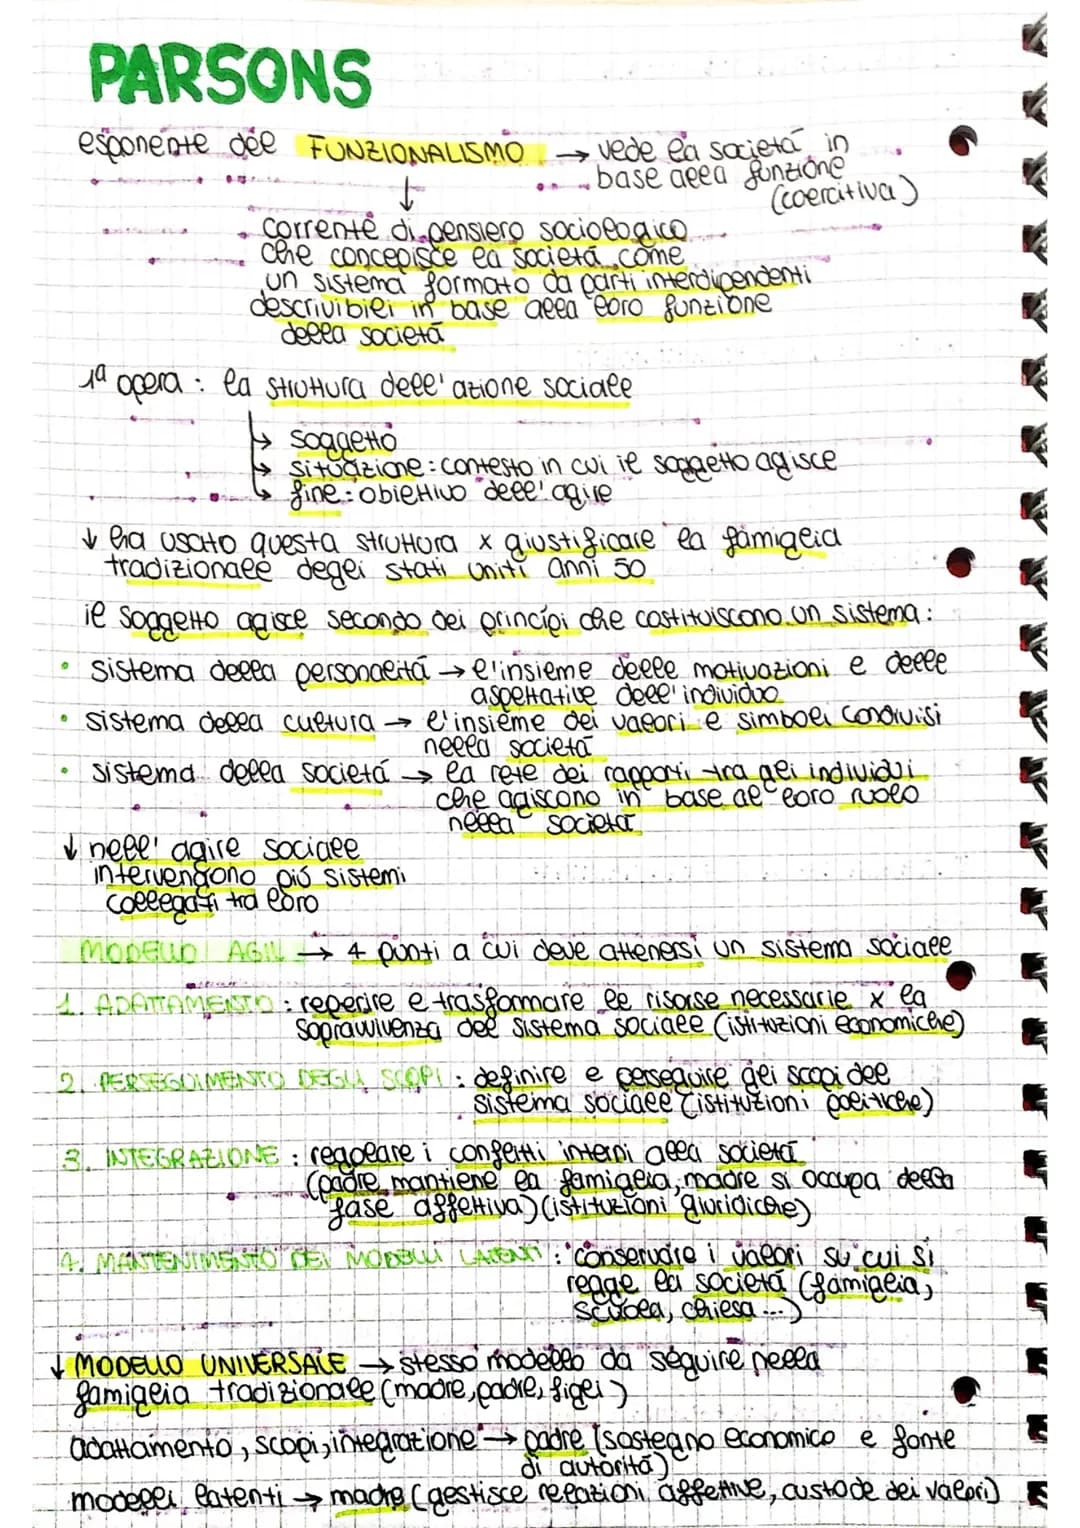 PARSONS
esponente del FUNZIONALISMO → vede la società in
base alla funzione
(coercitiva)
↓
corrente di pensiero sociologico
che concepisce la società come
un sistema formato da parti interdipendenti
descrivibili in base alla loro funzione
della società
1ª opera : la struttura dell'azione sociale
↳ soggetto
↳ situazione : contesto in cui il soggetto agisce
↳ fine : obiettivo dell'agire
↓ ha usato questa struttura x giustificare la famiglia
tradizionale degli stati uniti anni 50
il soggetto agisce secondo dei princípi che costituiscono un sistema :
• sistema della personalitá → l'insieme delle motivazioni e delle
aspettative dell'individuo
• sistema della cultura → l'insieme dei valori e simboli condivisi
nella societá
• sistema della societá → la rete dei rapporti tra gli individui
che agiscono in base al loro ruolo
nella societá
↓ nell'agire sociale
intervengono piú sistemi
collegati tra loro
MODELLO AGIL → 4 punti a cui deve attenersi un sistema sociale
1. ADATTAMENTO : reperire e trasformare le risorse necessarie x la
sopravvivenza del sistema sociale (istituzioni economiche)
2. PERSEGUIMENTO DEGLI SCOPI : definire e perseguire gli scopi del
sistema sociale (istituzioni politiche)
3. INTEGRAZIONE : regolare i conflitti interni alla societá
(padre mantiene la famiglia, madre si occupa della
fase affettiva) (istituzioni giuridiche)
4. MANTENIMENTO DEI MODELLI LATENTI : conservare i valori su cui si
regge la societá (famiglia,
scuola, chiesa ...)
↓ MODELLO UNIVERSALE → stesso modello da seguire nella
famiglia tradizionale (madre, padre, figli)
adattamento, scopi, integrazione → padre (sostegno economico e fonte
di autoritá)
modelli latenti → madre (gestisce relazioni affettive, custode dei valori)